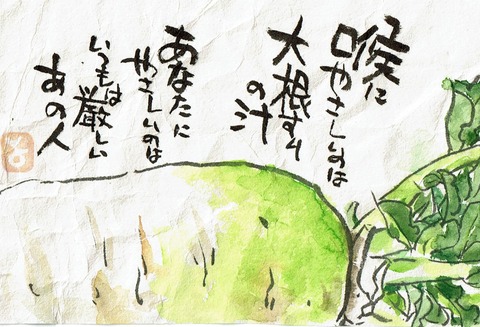 喉に
やさしいのは
大根すり
の汁
あなたに
やさしいのは
いつもは厳しい
あの人